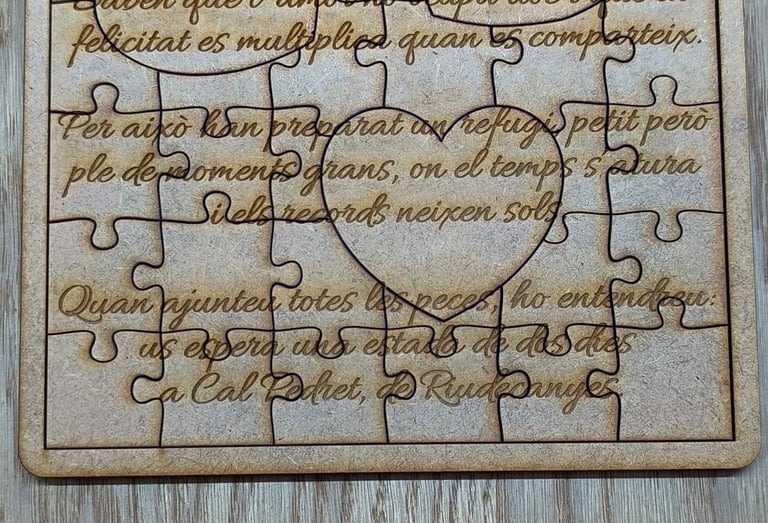 que l'amor no
felicitat es multiplica quan es comparteix.
Per això han preparat un refugi petit però
ple de moments grans, on el temps s'atura
i els records neixen sols.
Quan ajunteu totes les peces, ho entendreu:
us espera una estada de dos dies
a Cal Pedret, de Riudecanyes.